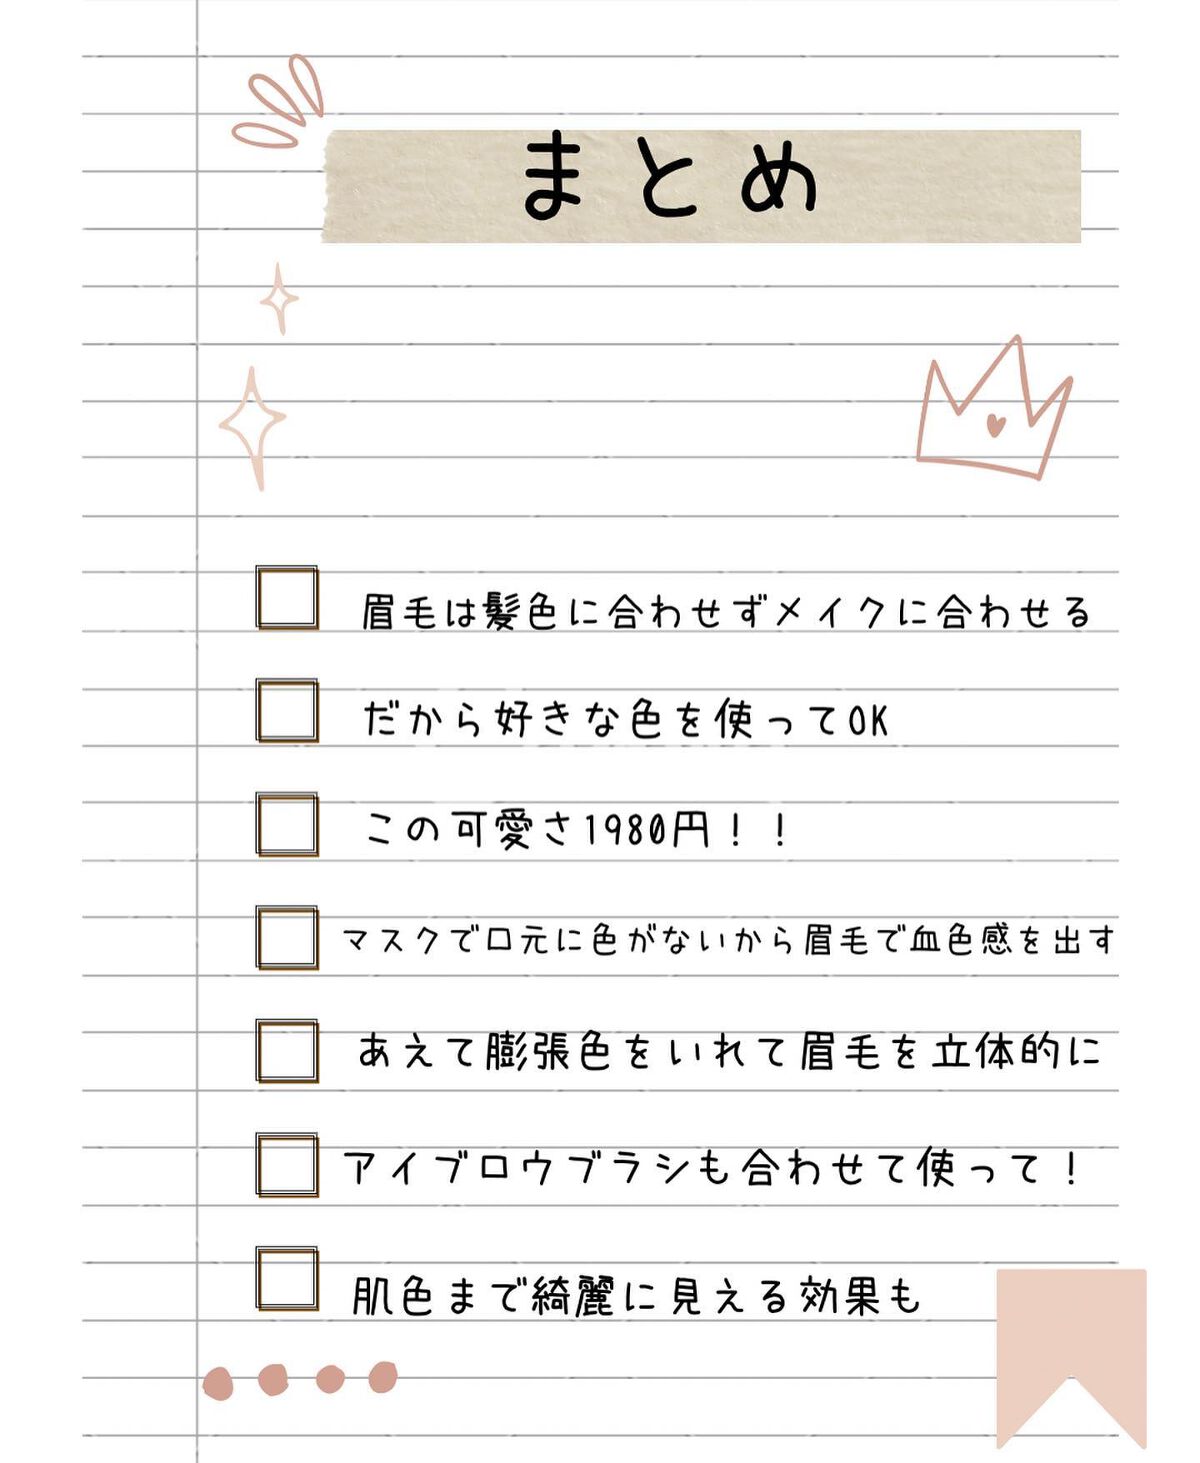 まとめ
眉毛は髪色に合わせずメイクに合わせる
だから好きな色を使ってOK
この可愛さ1980円！！
マスクで口元に色がないから眉毛で血色感を出す
あえて膨張色をいれて眉毛を立体的に
アイブロウブラシも合わせて使って！
肌色まで綺麗に見える効果も